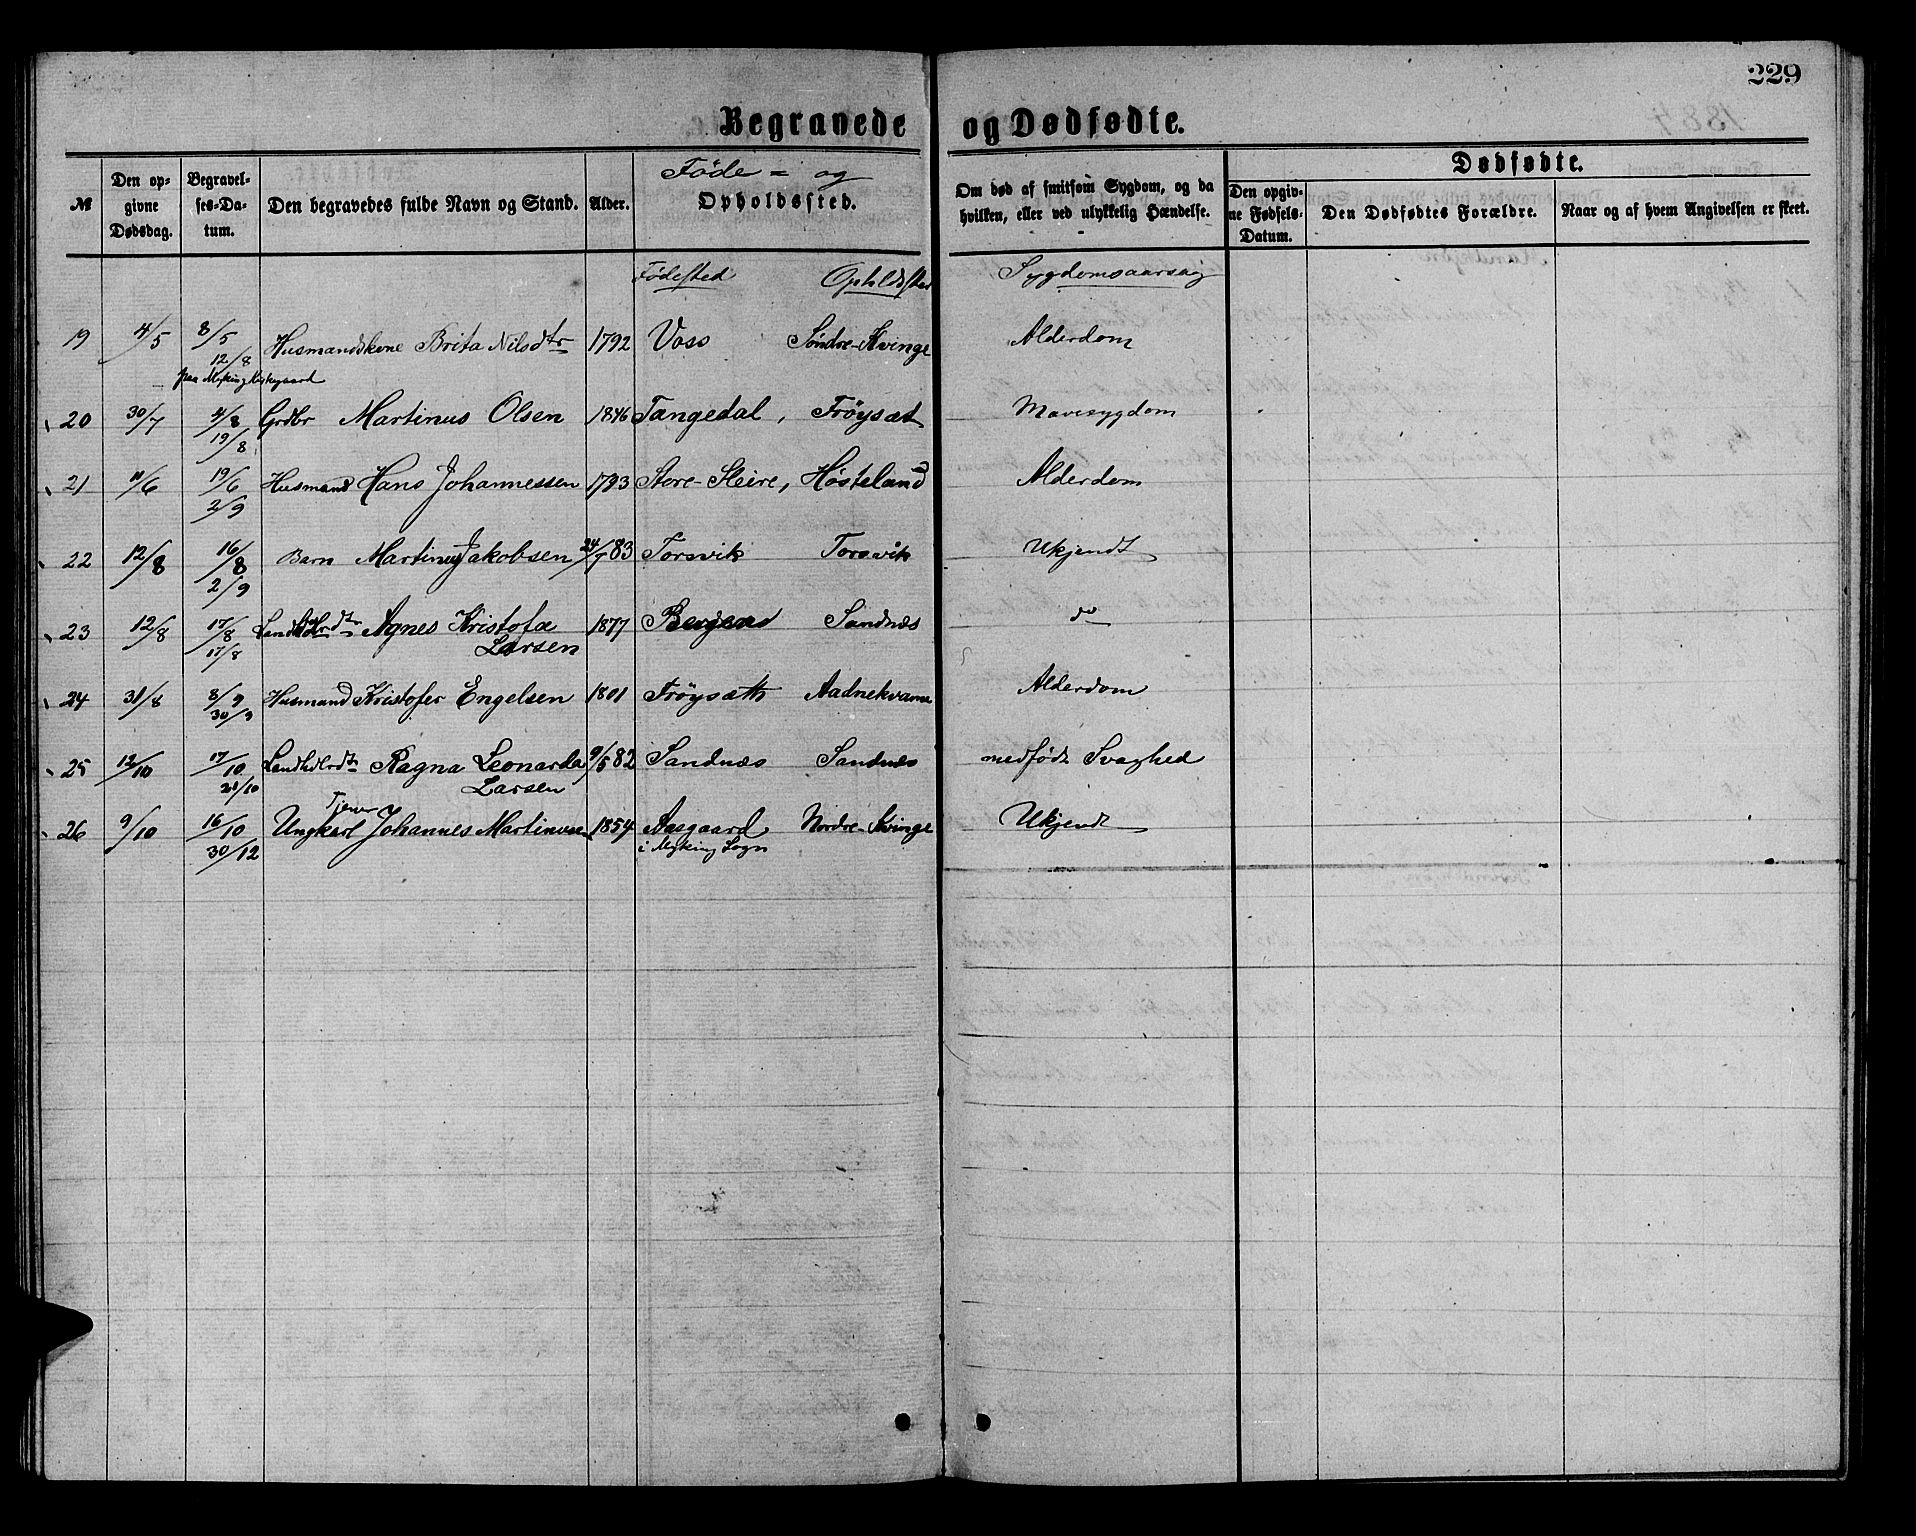 229
Begravede og Dødfødte.
№ Den op-givne Dødsdag. Begravel-ses-Da-tum. Den begravedes fulde Navn og Stand. Alder. Føde- og Opholdssted. Om død af smitsom Sygdom, og da hvilken, eller ved ulykkelig Hændelse. Dødfødte. Den opgiv-ne Fødsels-Datum. Den Dødfødtes Forældre. Naar og af hvem Angivelsen er skeet.
Fødested Opholdsted Sygdomsaarsag
19 4/5 8/5 Husmandskone Brita Nilsdtr 1792 Voss Søndre-Kvinge Alderdom
12/8
paa Myking Kirkegaard
20 30/7 4/8 Grdbr Martinus Olsen 1846 Tangedal, Frøysæt Mavesygdom
19/8
21 11/6 19/6 Husmand Hans Johannessen 1793 Store-Sleire, Høsteland Alderdom
2/9
22 12/8 16/8 Barn Martinus Jakobsen 24/7 83 Torsvik Torsvik Ukjendt
2/9
23 12/8 17/8 Landhdlrdtr Agnes Kristofa 1877 Bergen Sandnæs do
17/8 Larsen
24 31/8 8/9 Husmand Kristofer Engelsen 1801 Frøysætt Aadnekvame Alderdom
30/9
25 12/10 17/10 Landhdlrdtr Ragna Leonarda 9/5 82 Sandnæs Sandnæs medfødt Svaghed
21/10 Larsen
Tjener
26 9/10 16/10 Ungkarl Johannes Martinuss 1854 Aasgaard Nordre-Kvinge Ukjendt
30/12 i Myking Sogn